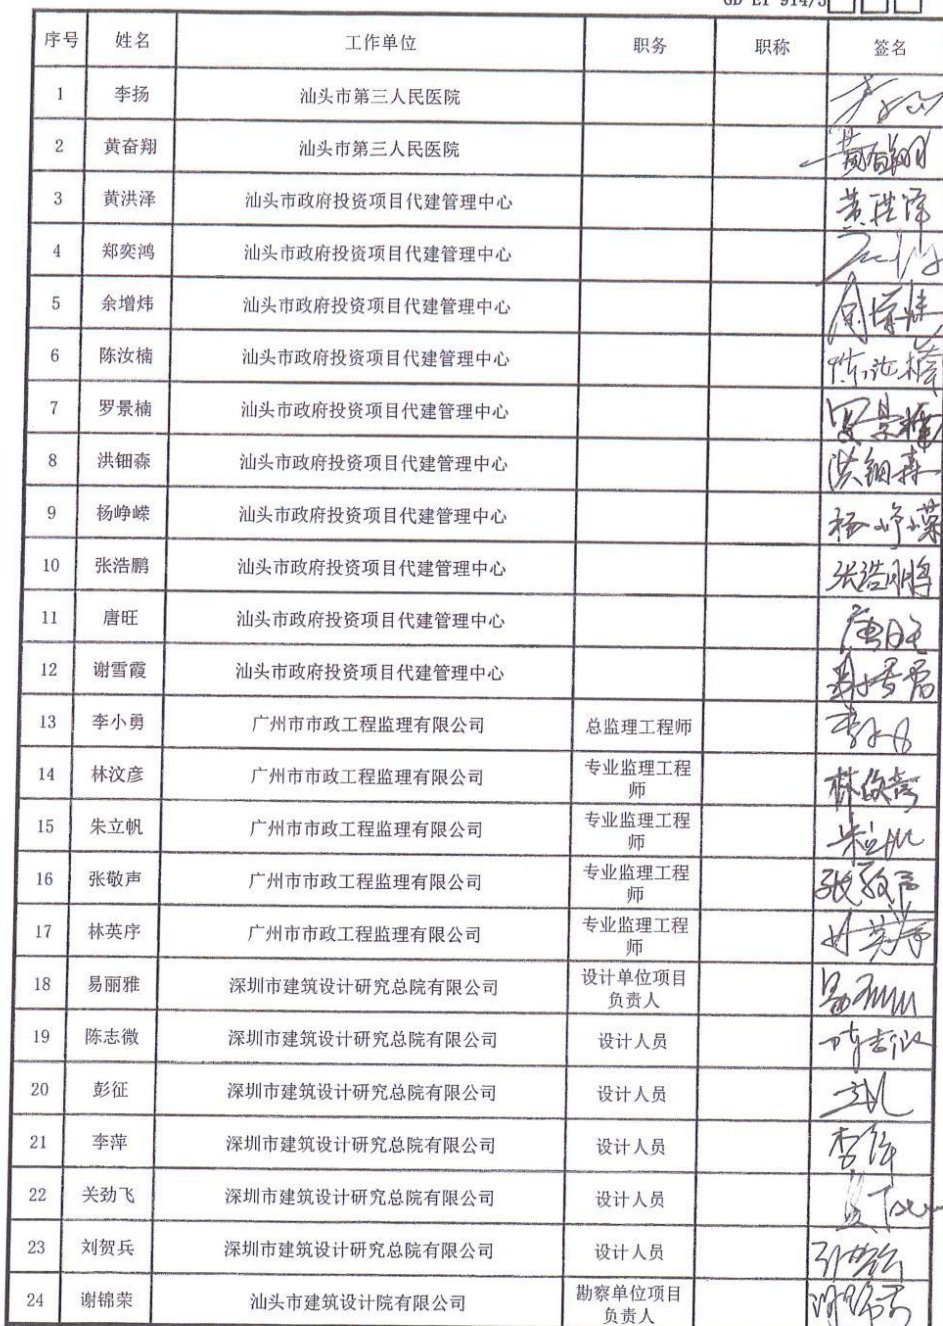 序号 姓名 工作单位 职务 职称 签名
1 李扬 汕头市第三人民医院
2 黄奋翔 汕头市第三人民医院 黄奋翔
3 黄洪泽 汕头市政府投资项目代建管理中心 黄洪泽
4 郑奕鸿 汕头市政府投资项目代建管理中心
5 余增炜 汕头市政府投资项目代建管理中心 余增炜
6 陈汝楠 汕头市政府投资项目代建管理中心 陈汝楠
7 罗景楠 汕头市政府投资项目代建管理中心 罗景楠
8 洪钿森 汕头市政府投资项目代建管理中心 洪钿森
9 杨峥嵘 汕头市政府投资项目代建管理中心 杨峥嵘
10 张浩鹏 汕头市政府投资项目代建管理中心 张浩鹏
11 唐旺 汕头市政府投资项目代建管理中心 唐旺
12 谢雪霞 汕头市政府投资项目代建管理中心
13 李小勇 广州市市政工程监理有限公司 总监理工程师
14 林汶彦 广州市市政工程监理有限公司 专业监理工程
师
15 朱立帆 广州市市政工程监理有限公司 专业监理工程
师
16 张敬声 广州市市政工程监理有限公司 专业监理工程
师 张敬声
17 林英序 广州市市政工程监理有限公司 专业监理工程
师
18 易丽雅 深圳市建筑设计研究总院有限公司 设计单位项目
负责人
19 陈志微 深圳市建筑设计研究总院有限公司 设计人员 陈志微
20 彭征 深圳市建筑设计研究总院有限公司 设计人员
21 李萍 深圳市建筑设计研究总院有限公司 设计人员 李萍
22 关劲飞 深圳市建筑设计研究总院有限公司 设计人员
23 刘贺兵 深圳市建筑设计研究总院有限公司 设计人员
24 谢锦荣 汕头市建筑设计院有限公司 勘察单位项目
负责人